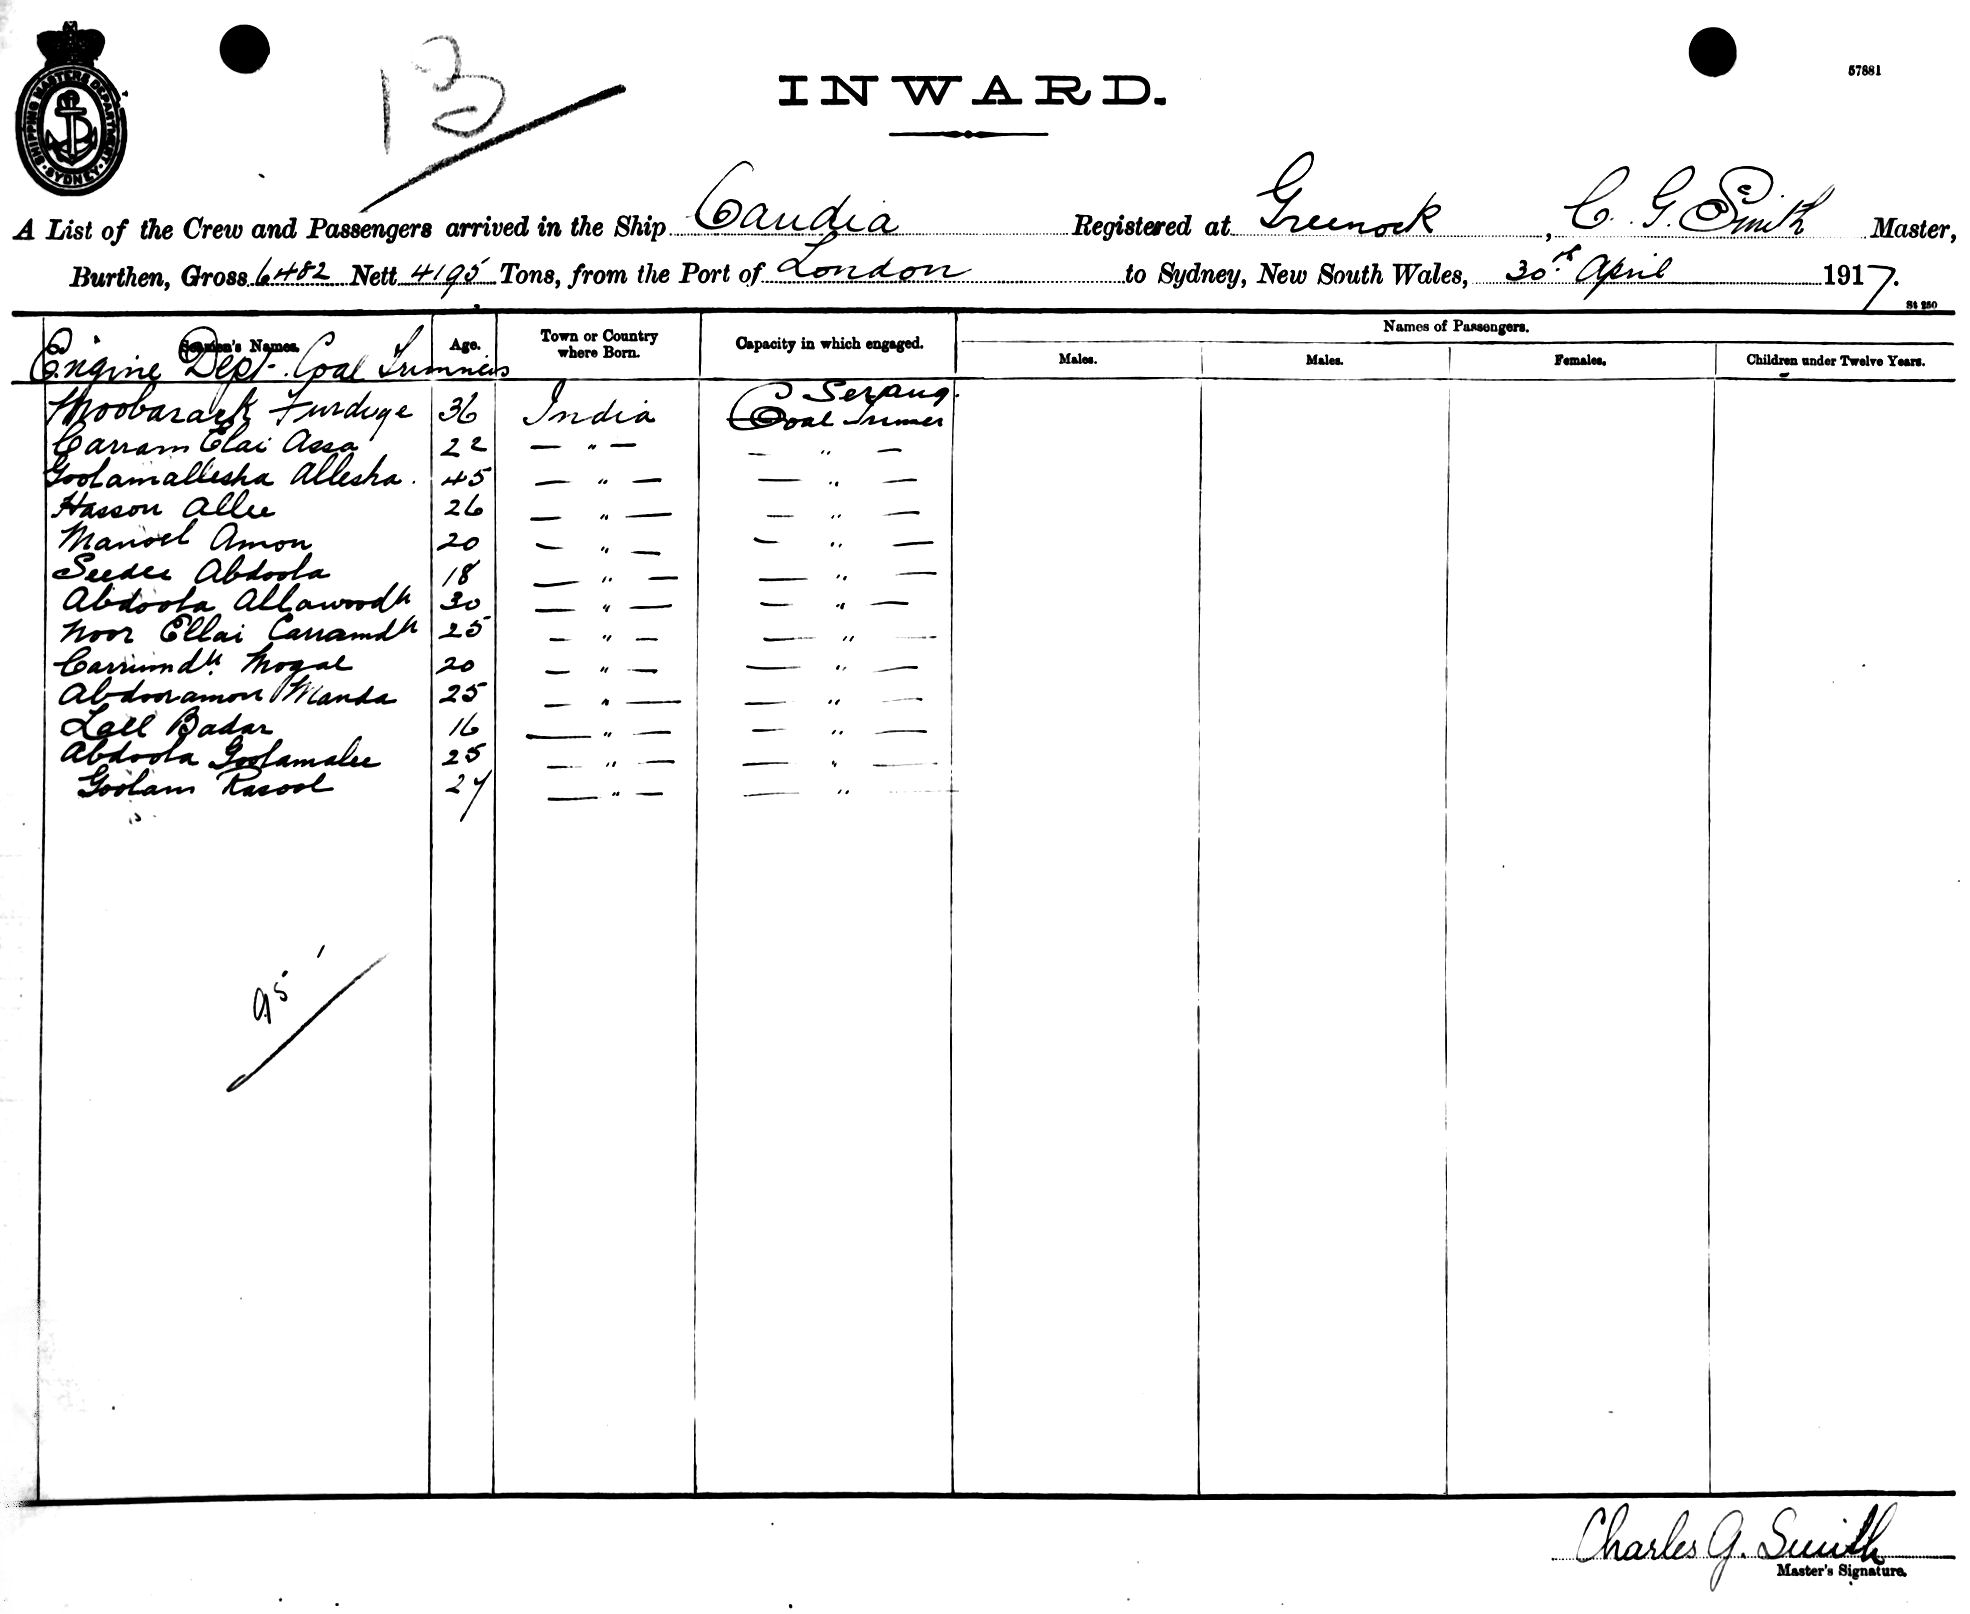 SHIPPING MASTERS DEPARTMENT. SYDNEY.
13
INWARD.
57881
A List of the Crew and Passengers arrived in the Ship Candia Registered at Greenock, C. G. Smith Master,
Burthen, Gross 6482 Nett 4195 Tons, from the Port of London to Sydney, New South Wales, 30th April 1917.
St 250
Seamen's Names. Age. Town or Country where Born. Capacity in which engaged. Names of Passengers.
Males. Males. Females. Children under Twelve Years.
Engine Dept. Coal Trimmers
Moobarack Furduge 36 India C Serang.
Coal Trimer
Carram Elai Assa 22 — " — — " —
Goolamallesha Allesha. 45 — " — — " —
Hasson Allee 26 — " — — " —
Manoel Amon 20 — " — — " —
Seedee Abdoola 18 — " — — " —
Abdoola Allawoodn 30 — " — — " —
Noor Ellai Carramdn 25 — " — — " —
Carrumdn Mogal 20 — " — — " —
Abdooramon Manda 25 — " — — " —
Lall Badar 16 — " — — " —
Abdoola Goolamalee 25 — " — — " —
Goolam Rasool 27 — " — — " —
95
Charles G. Smith
Master's Signature.